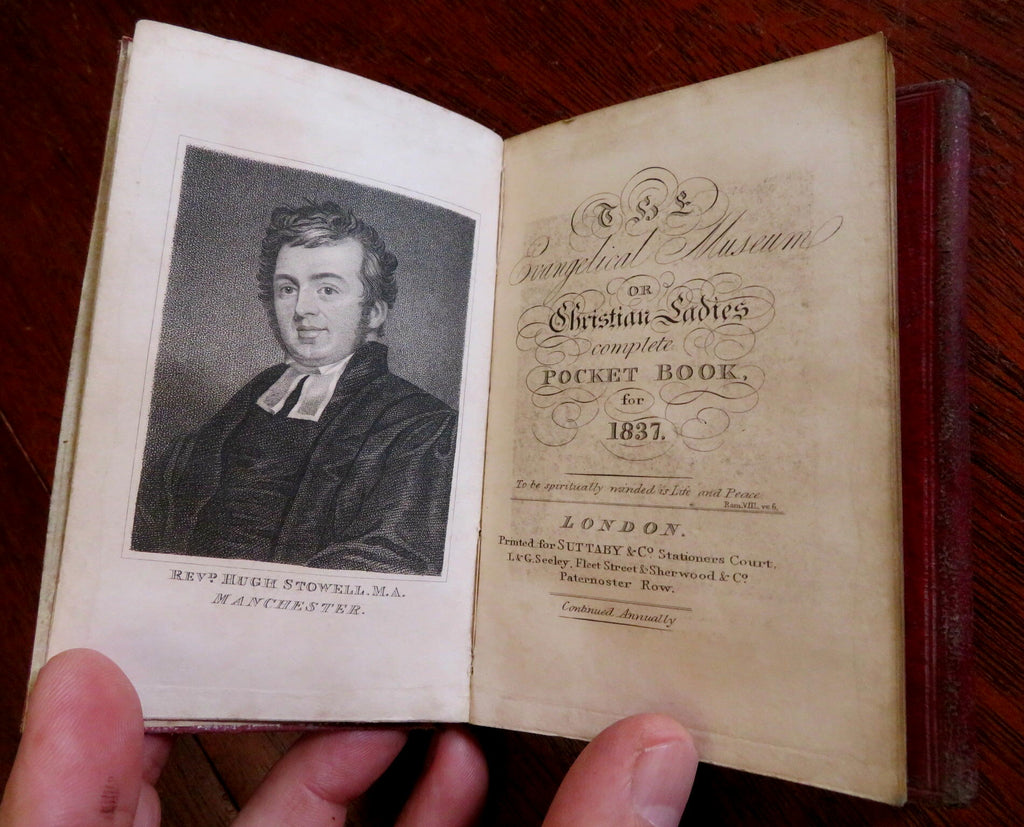 REVD. HUGH STOWELL. M.A.
MANCHESTER.
THE
Evangelical Museum
OR
Christian Ladies
complete
POCKET BOOK,
for
1837.
To be spiritually minded is Life and Peace
Rom. VIII, ve 6.
LONDON.
Printed for SUTTABY & Co. Stationers Court,
L & G. Seeley, Fleet Street & Sherwood & Co.
Paternoster Row.
Continued Annually